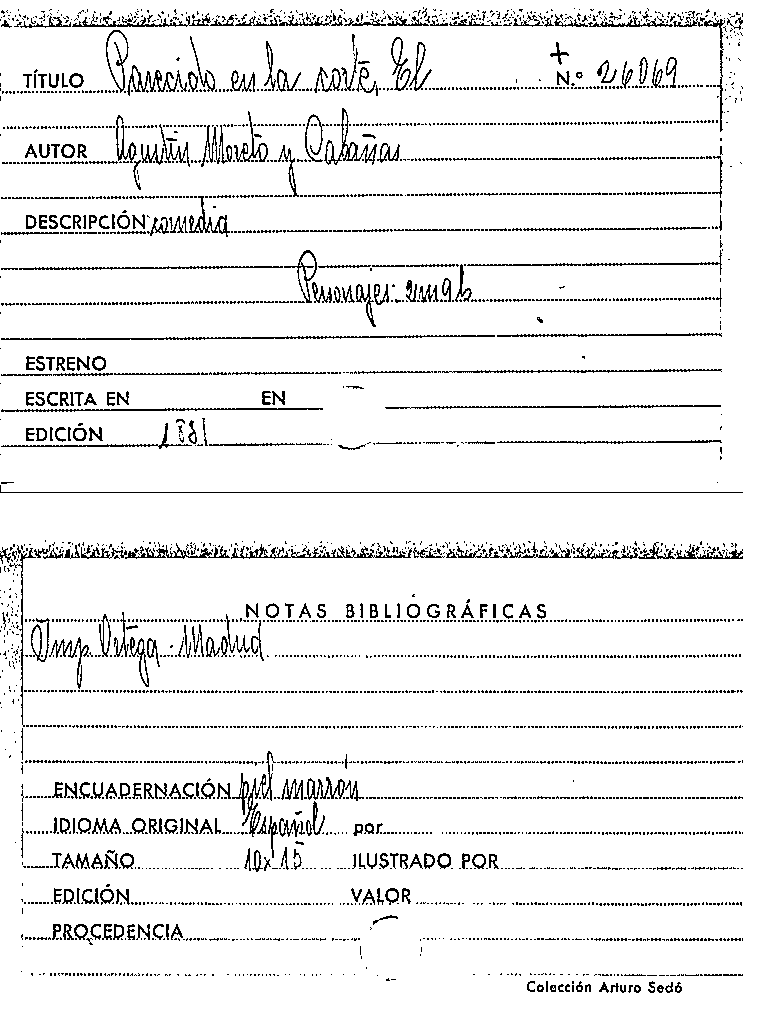 TÍTULO Parecido en la corte, El + N.º 26069
AUTOR Agustín Moreto y Cabañas
DESCRIPCIÓN comedia
Personajes: 2m 9h
ESTRENO
ESCRITA EN EN
EDICIÓN 1881
NOTAS BIBLIOGRÁFICAS
Imp. Ortega - Madrid
ENCUADERNACIÓN piel marrón
IDIOMA ORIGINAL Español por
TAMAÑO 10x15 ILUSTRADO POR
EDICIÓN VALOR
PROCEDENCIA
Colección Arturo Sedó